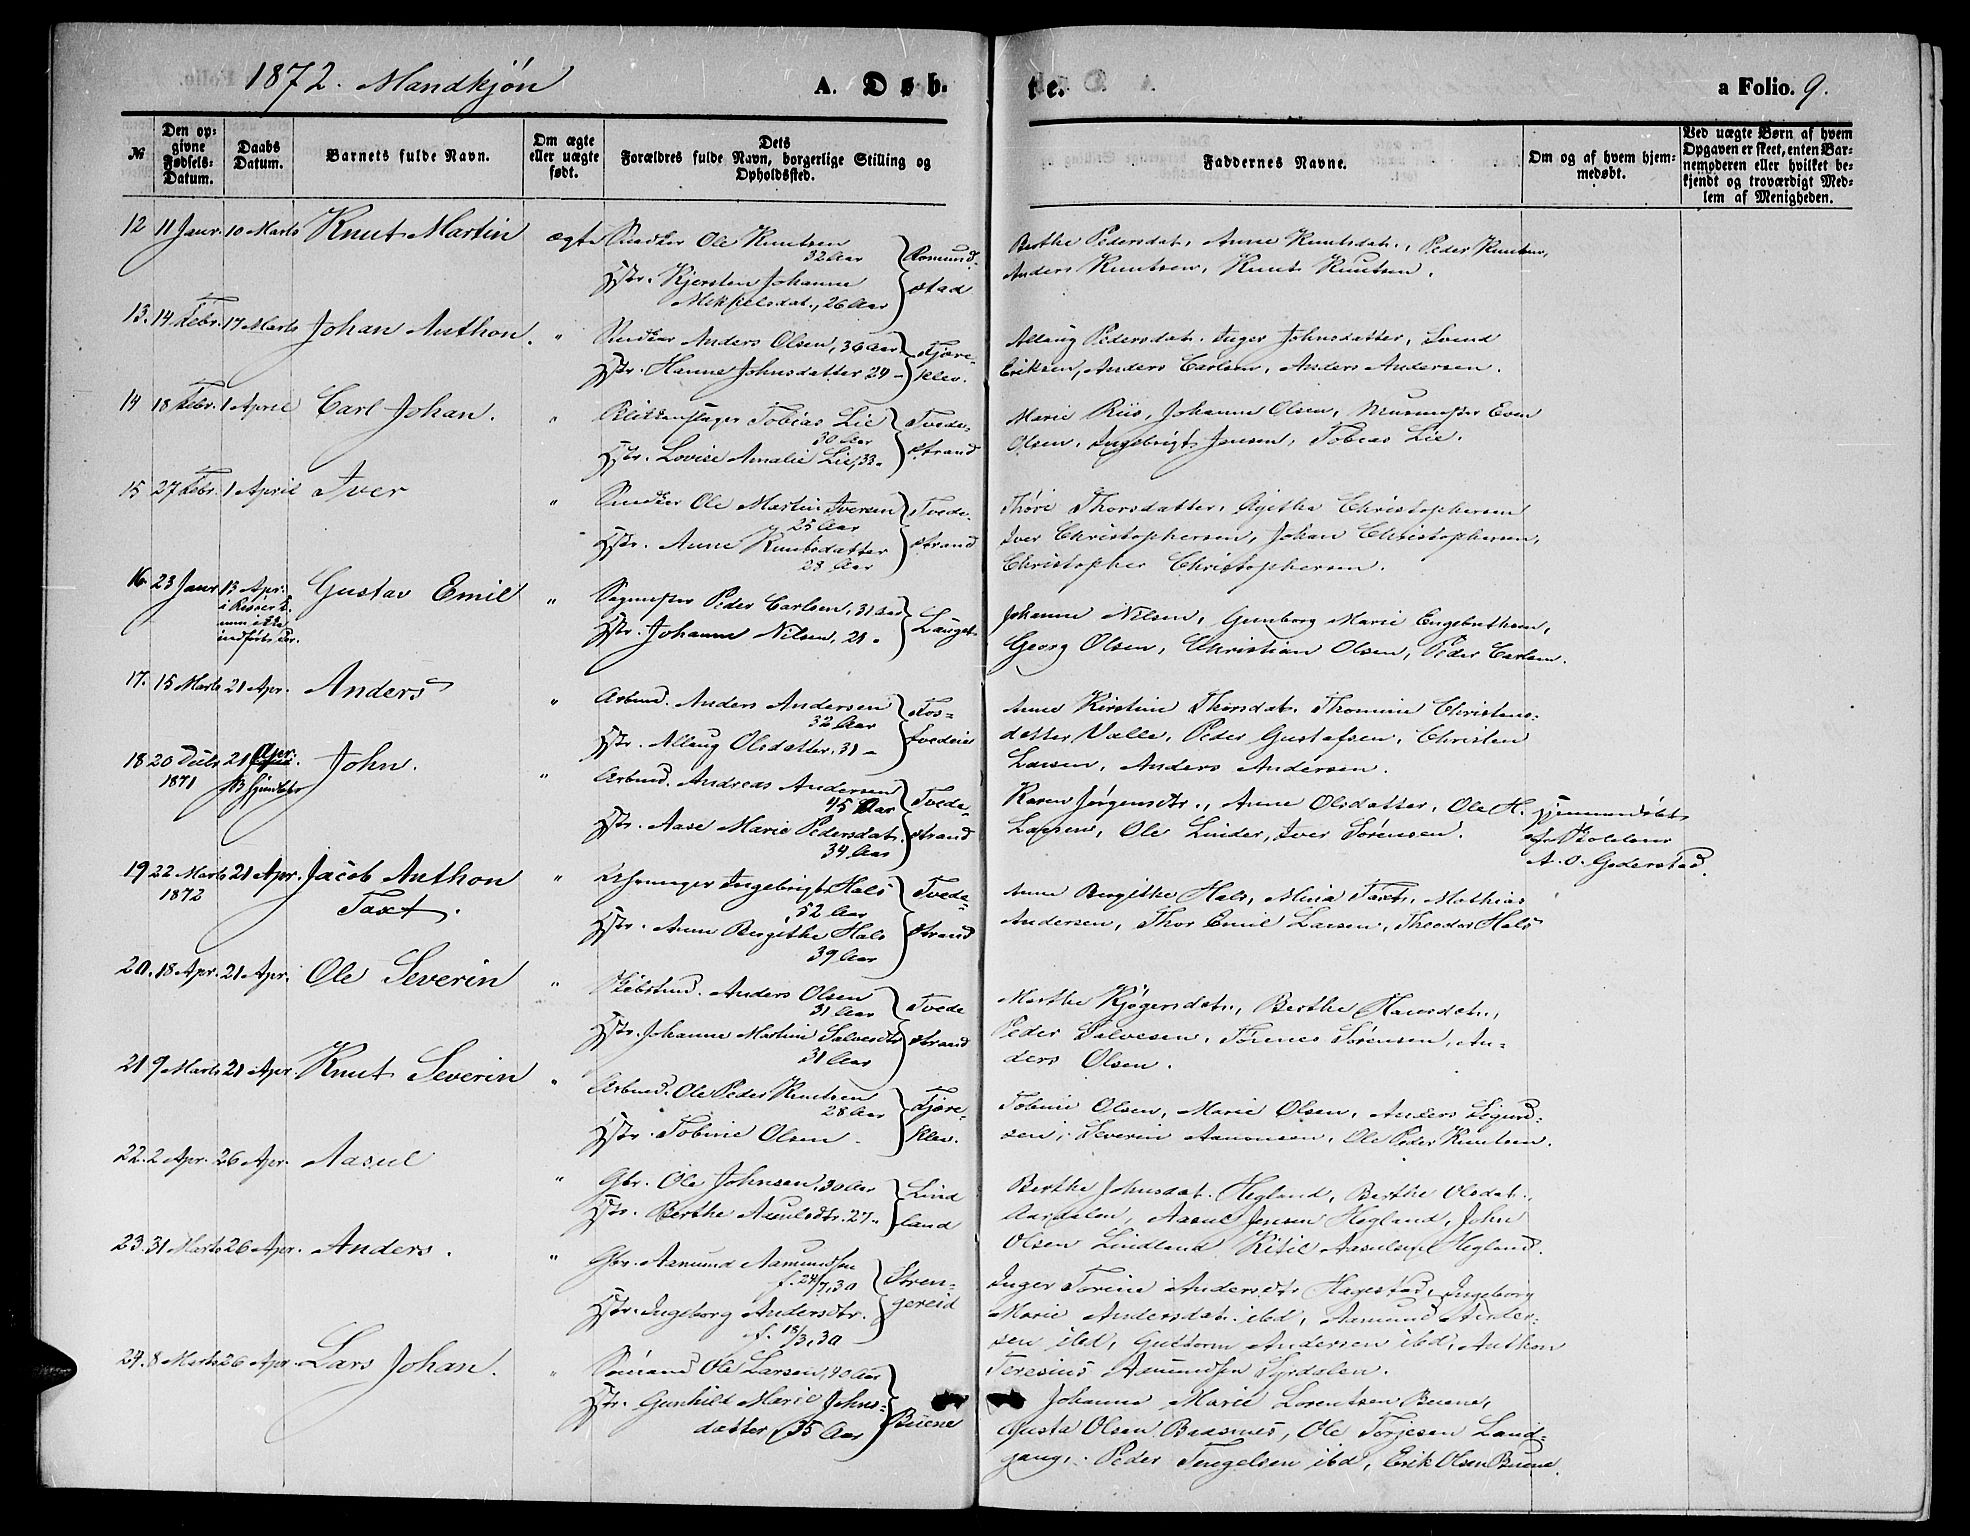 1872. Mandkjøn
A. Døb-
te.
a Folio. 9.
№
Den op-
givne
Fødsels-
Datum.
Daabs
Datum.
Barnets fulde Navn.
Om ægte
eller uægte
født.
Dets
Forældres fulde Navn, borgerlige Stilling og
Opholdssted.
Faddernes Navne.
Om og af hvem hjem-
medøbt.
Ved uægte Børn af hvem
Opgaven er skeet, enten Bar-
nemoderen eller hvilket be-
kjendt og troværdigt Med-
lem af Menigheden.
12 11 Janr. 10 Marts Knut Martin ægte Ole Knutsen
32 Aar
Hstr. Kjersten Johanne
Mikkelsdat., 26 Aar
Romund-
stad
Berthe Pedersdat., Anne Knutsdat., Peder Knutsen,
Anders Knutsen, Knut Knutsen.
13. 14 Febr. 17 Marts Johan Anthon. " Anders Olsen, 36 Aar
Hstr. Hanne Johnsdatter 24 -
Fjære-
klev.
Allaug Pedersdat. Inger Johnsdatter, Svend
Eriksen, Anders Carlsen, Anders Andersen.
14 18 Febr. 1 April Carl Johan. " Blikkenslager Tobias Lie
30 Aar
Hstr. Lovise Amalie Lie, 33 "
Tvede-
strand
Marie Riis, Johanne Olsen, Murmester Even
Olsen, Ingebrigt Jensen, Tobias Lie.
15 27 Febr. 1 April Iver " Ole Martin Iversen
25 Aar
Hstr. Anne Knutsdatter
28 Aar
Tvede-
strand
Thøre Thorsdatter, Agithe Christophersen
Iver Christophersen, Johan Christophersen,
Christopher Christophersen.
16. 23 Janr 13 Apr. Gustav Emil " Sagmester Peder Carlsen, 31 Aar
Hstr. Johanne Nilsen, 21 "
Lauget
Johanne Nilsen, Gunborg Marie Engebrethsen,
Georg Olsen, Christian Olsen, Peder Carlsen.
17. 15 Marts 21 Apr. Anders " Arbmd. Anders Andersen
32 Aar
Hstr. Allaug Olsdatter. 31 -
Fos-
tvedeie
Anne Kirstine Thorsdat. Thomine Christens-
datter Valle, Peder Gustafsen, Christen
Larsen, Anders Andersen.
18 20 Decbr. 21 Apr. John. " Arbmd. Andreas Andersen
1871
45 Aar
Hstr. Aase Marie Pedersdat.
34 Aar
Tvede-
strand
Karen Jørgensdtr., Anne Olsdatter, Ole H.
Larsen, Ole Linder, Iver Sørensen.
Hjemmedøbt
af
A. O. Goderstad.
19 22 Marts 21 Apr. Jacob Anthon " Ingebrigt Hals
1872 Taxt. 52 Aar
Hstr. Anne Bergithe Hals
39 Aar
Tvede-
strand
Anne Bergithe Hals, Mina Taxt, Mathias
Andersen, Thor Emil Larsen, Theodor Hals
20. 18 Apr. 21 Apr. Ole Severin " Anders Olsen
31 Aar
Hstr. Johanne Martine Salvesdtr
31 Aar
Tvede
strand
Marthe Kjøgersdat., Berthe Hansdat.,
Peder Salvesen, Tønnes Sørensen, An-
ders Olsen.
21 9 Marts 21 Apr. Knut Severin " Arbmd. Ole Peder Knutsen
28 Aar
Hstr. Tobine Olsen -
Fjære-
klev.
Tobine Olsen, Marie Olsen, Anders Sigurd-
sen, Severin Aanonsen, Ole Peder Knutsen.
22. 2 Apr. 26 Apr. Aasul " Gbr. Ole Johnsen, 30 Aar
Hstr. Berthe Aasulsdtr. 27 "
Lind
land
Berthe Johnsdat. Hegland, Berthe Olsdat.
Aardalen, Aasul Jensen Hegland, John
Olsen Lindland Kitil Aasulsen Hegland.
23. 31 Marts 26 Apr. Anders. " Gbr. Aamund Aamundsen
f. 24/7, 30
Hstr. Ingeborg Andersdtr.
f. 18/3, 30
Støren-
gereid
Inger Torine Andersdtr Hagestad, Ingeborg
Marie Andersdat. ibd, Aamund Ander-
sen ibd, Guttorm Andersen ibd, Anthon
Teresius Aamundsen Syrdalen.
24. 8 Marts 26 Apr. Lars Johan. " Sømand Ole Larsen, 40 Aar
Hstr. Gunhild Marie Johns-
datter (35 Aar
Buene
Johanne Marie Lorentsen Buene,
Gusta Olsen Braasnes, Ole Torjesen Land-
gang, Peder Tengelsen ibd, Erik Olsen Buene.